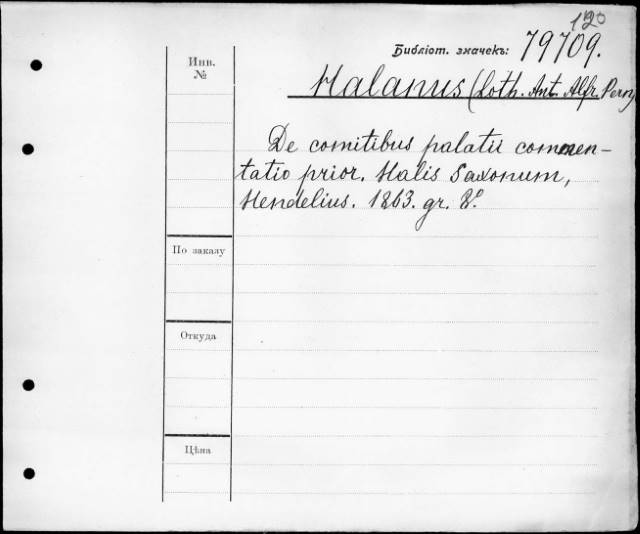 120
Библіот. значекъ: 79709.
Инв.
№
Halanus (Loth. Ant. Alfr. Pern)
De comitibus palatii commen-
tatio prior. Halis Saxonum,
Hendelius. 1863. gr. 8º.
По заказу
Откуда
Цѣна